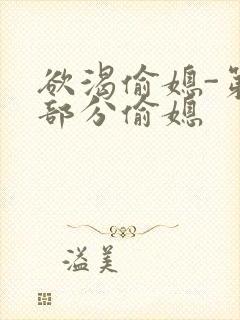 欲渴偷媳-第
部分偷媳
溢美